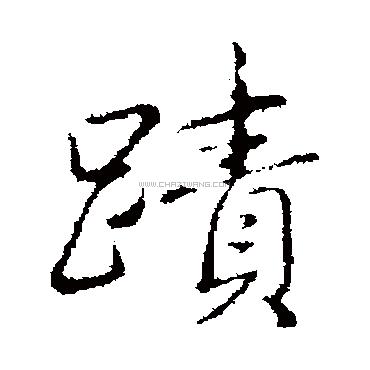 蹟
WWW.CHAZIWANG.COM